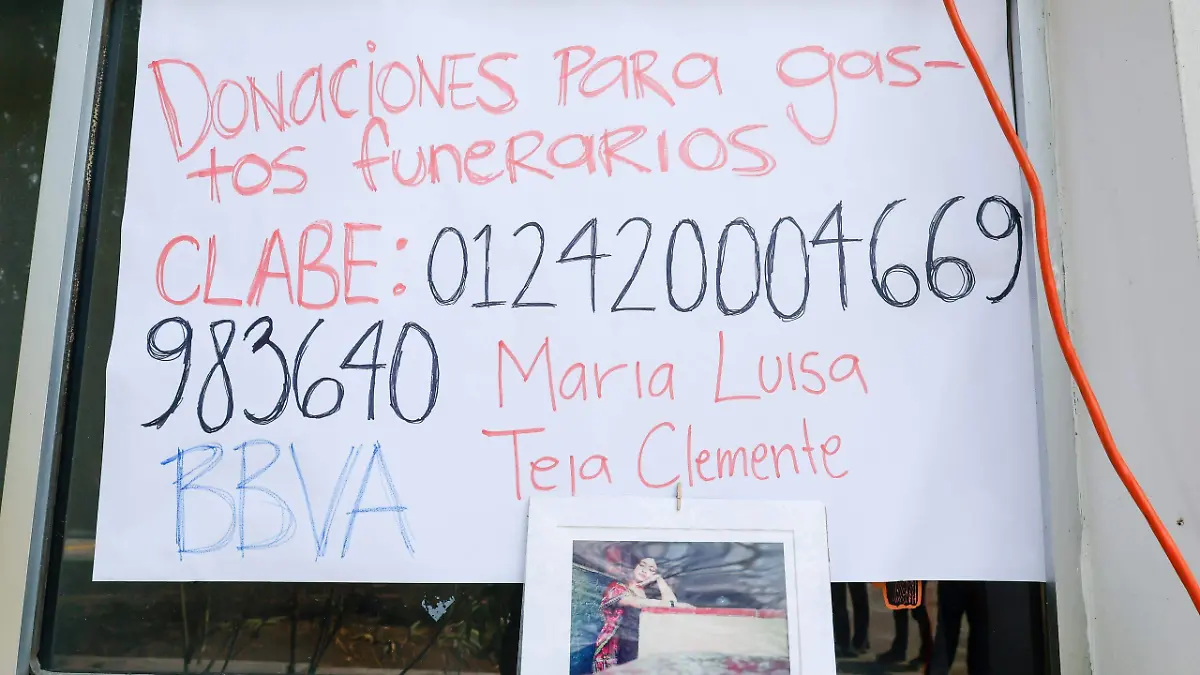 Donaciones para gas-
tos funerarios
CLABE: 012420004669
983640 Maria Luisa
BBVA Teja Clemente